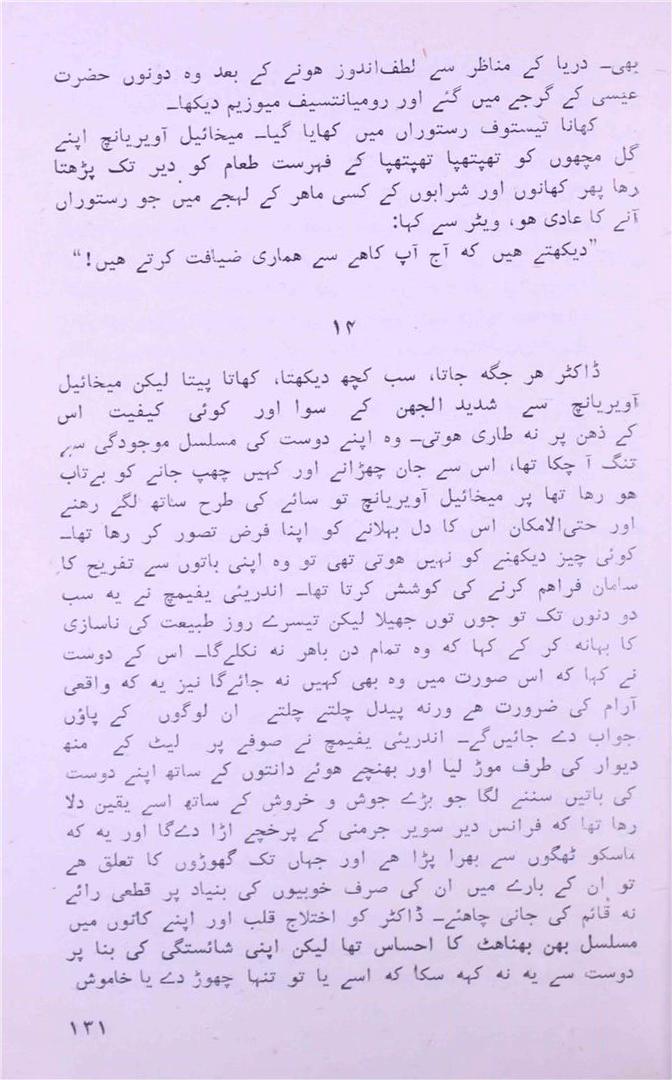 بھی۔ دریا کے مناظر سے لطف‌اندوز ھونے کے بعد وہ دونوں حضرت
عیسی کے گرجے میں گئے اور رومیانتسیف میوزیم دیکھا۔
کھانا تیستوف رستوراں میں کھایا گیا۔ میخائیل آویریانچ اپنے
گل مچھوں کو تھپتھپا تھپتھپا کے فہرست طعام کو دیر تک پڑھتا
رھا پھر کھانوں اور شرابوں کے کسی ماھر کے لہجے میں جو رستوراں
آنے کا عادی ھو، ویٹر سے کہا:
”دیکھتے ھیں که آج آپ کاھے سے ھماری ضیافت کرتے ھیں!“
۱۴
ڈاکٹر ھر جگه جاتا، سب کچھ دیکھتا، کھاتا پیتا لیکن میخائیل
آویریانچ سے شدید الجھن کے سوا اور کوئی کیفیت اس
کے ذھن پر نه طاری ھوتی۔ وہ اپنے دوست کی مسلسل موجودگی سے
تنگ آ چکا تھا، اس سے جان چھڑانے اور کہیں چھپ جانے کو بےتاب
ھو رھا تھا پر میخائیل آویریانچ تو سائے کی طرح ساتھ لگے رھنے
اور حتی‌الامکان اس کا دل بہلانے کو اپنا فرض تصور کر رھا تھا۔
کوئی چیز دیکھنے کو نہیں ھوتی تھی تو وہ اپنی باتوں سے تفریح کا
سامان فراھم کرنے کی کوشش کرتا تھا۔ اندریئی یفیمچ نے یه سب
دو دنوں تک تو جوں توں جھیلا لیکن تیسرے روز طبیعت کی ناسازی
کا بہانه کر کے کہا که وہ تمام دن باھر نه نکلےگا۔ اس کے دوست
نے کہا که اس صورت میں وہ بھی کہیں نه جائےگا نیز یه که واقعی
آرام کی ضرورت ھے ورنه پیدل چلتے چلتے ان لوگوں کے پاؤں
جواب دے جائیں‌گے۔ اندریئی یفیمچ نے صوفے پر لیٹ کے منھ
دیوار کی طرف موڑ لیا اور بھنچے ھوئے دانتوں کے ساتھ اپنے دوست
کی باتیں سننے لگا جو بڑے جوش و خروش کے ساتھ اسے یقین دلا
رھا تھا که فرانس دیر سویر جرمنی کے پرخچے اڑا دےگا اور یه که
ماسکو ٹھگوں سے بھرا پڑا ھے اور جہاں تک گھوڑوں کا تعلق ھے
تو اُن کے بارے میں ان کی صرف خوبیوں کی بنیاد پر قطعی رائے
نه قائم کی جانی چاھئے۔ ڈاکٹر کو اختلاج قلب اور اپنے کانوں میں
مسلسل بھن بھناھٹ کا احساس تھا لیکن اپنی شائستگی کی بنا پر
دوست سے یه نه کہه سکا که اسے یا تو تنہا چھوڑ دے یا خاموش
۱۳۱